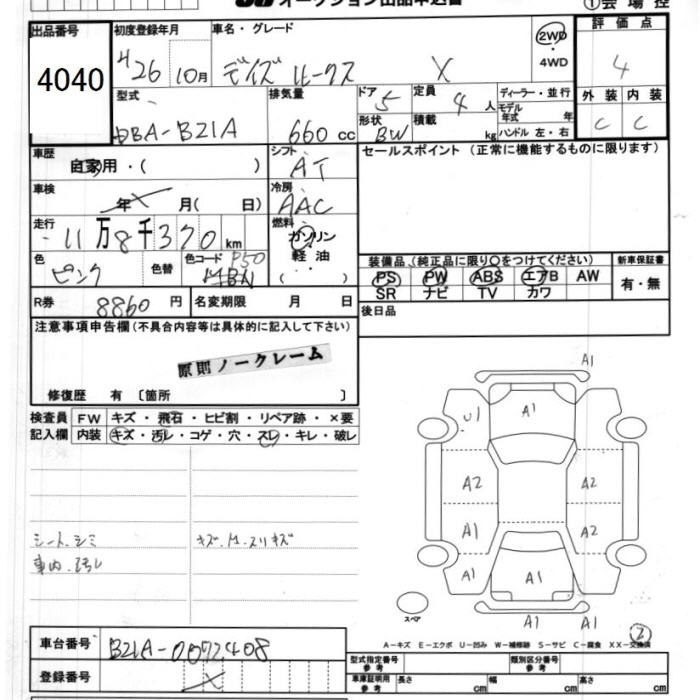 オークション出品申込書
①会場控
出品番号
4040
初度登録年月
H26 10月
車名・グレード
デイズルークス X
2WD
・
4WD
評価点
4
型式
DBA-B21A
排気量
660 cc
ドア 5
形状 BW
定員 4 人
積載 kg
ディーラー・並行
モデル年式 年
ハンドル 左・右
外装 内装
C C
車歴
自家用・( )
シフト
AT
セールスポイント (正常に機能するものに限ります)
車検
年 X 月( 日)
冷房
AAC
走行
11万8千370 km
燃料
ガソリン
軽油
( )
色
ピンク
色替
色コード P50
装備品 (純正品に限り○をつけてください)
新車保証書
PS PW ABS エアB AW
SR ナビ TV カワ
有・無
R券 8860 円 名変期限 月 日
後日品
注意事項申告欄 (不具合内容等は具体的に記入して下さい)
原則ノークレーム
修復歴 有 〔箇所 〕
検査員 FW キズ・飛石・ヒビ割・リペア跡・×要
記入欄 内装 キズ・汚レ・コゲ・穴・スレ・キレ・破レ
シート、シミ
車内、汚れ
キズ、M.スリキズ
A1
U1 A1
A2 A2
A1 A2
A1 A1 A1
A1 A1
スペア
②
A-キズ E-エクボ U-凹み W-補修跡 S-サビ C-腐食 XX-交換済
車台番号 B21A-0072408
登録番号 X
型式指定番号 参考
類別区分番号 参考
車庫証明用 参考
長さ cm 幅 cm 高さ cm